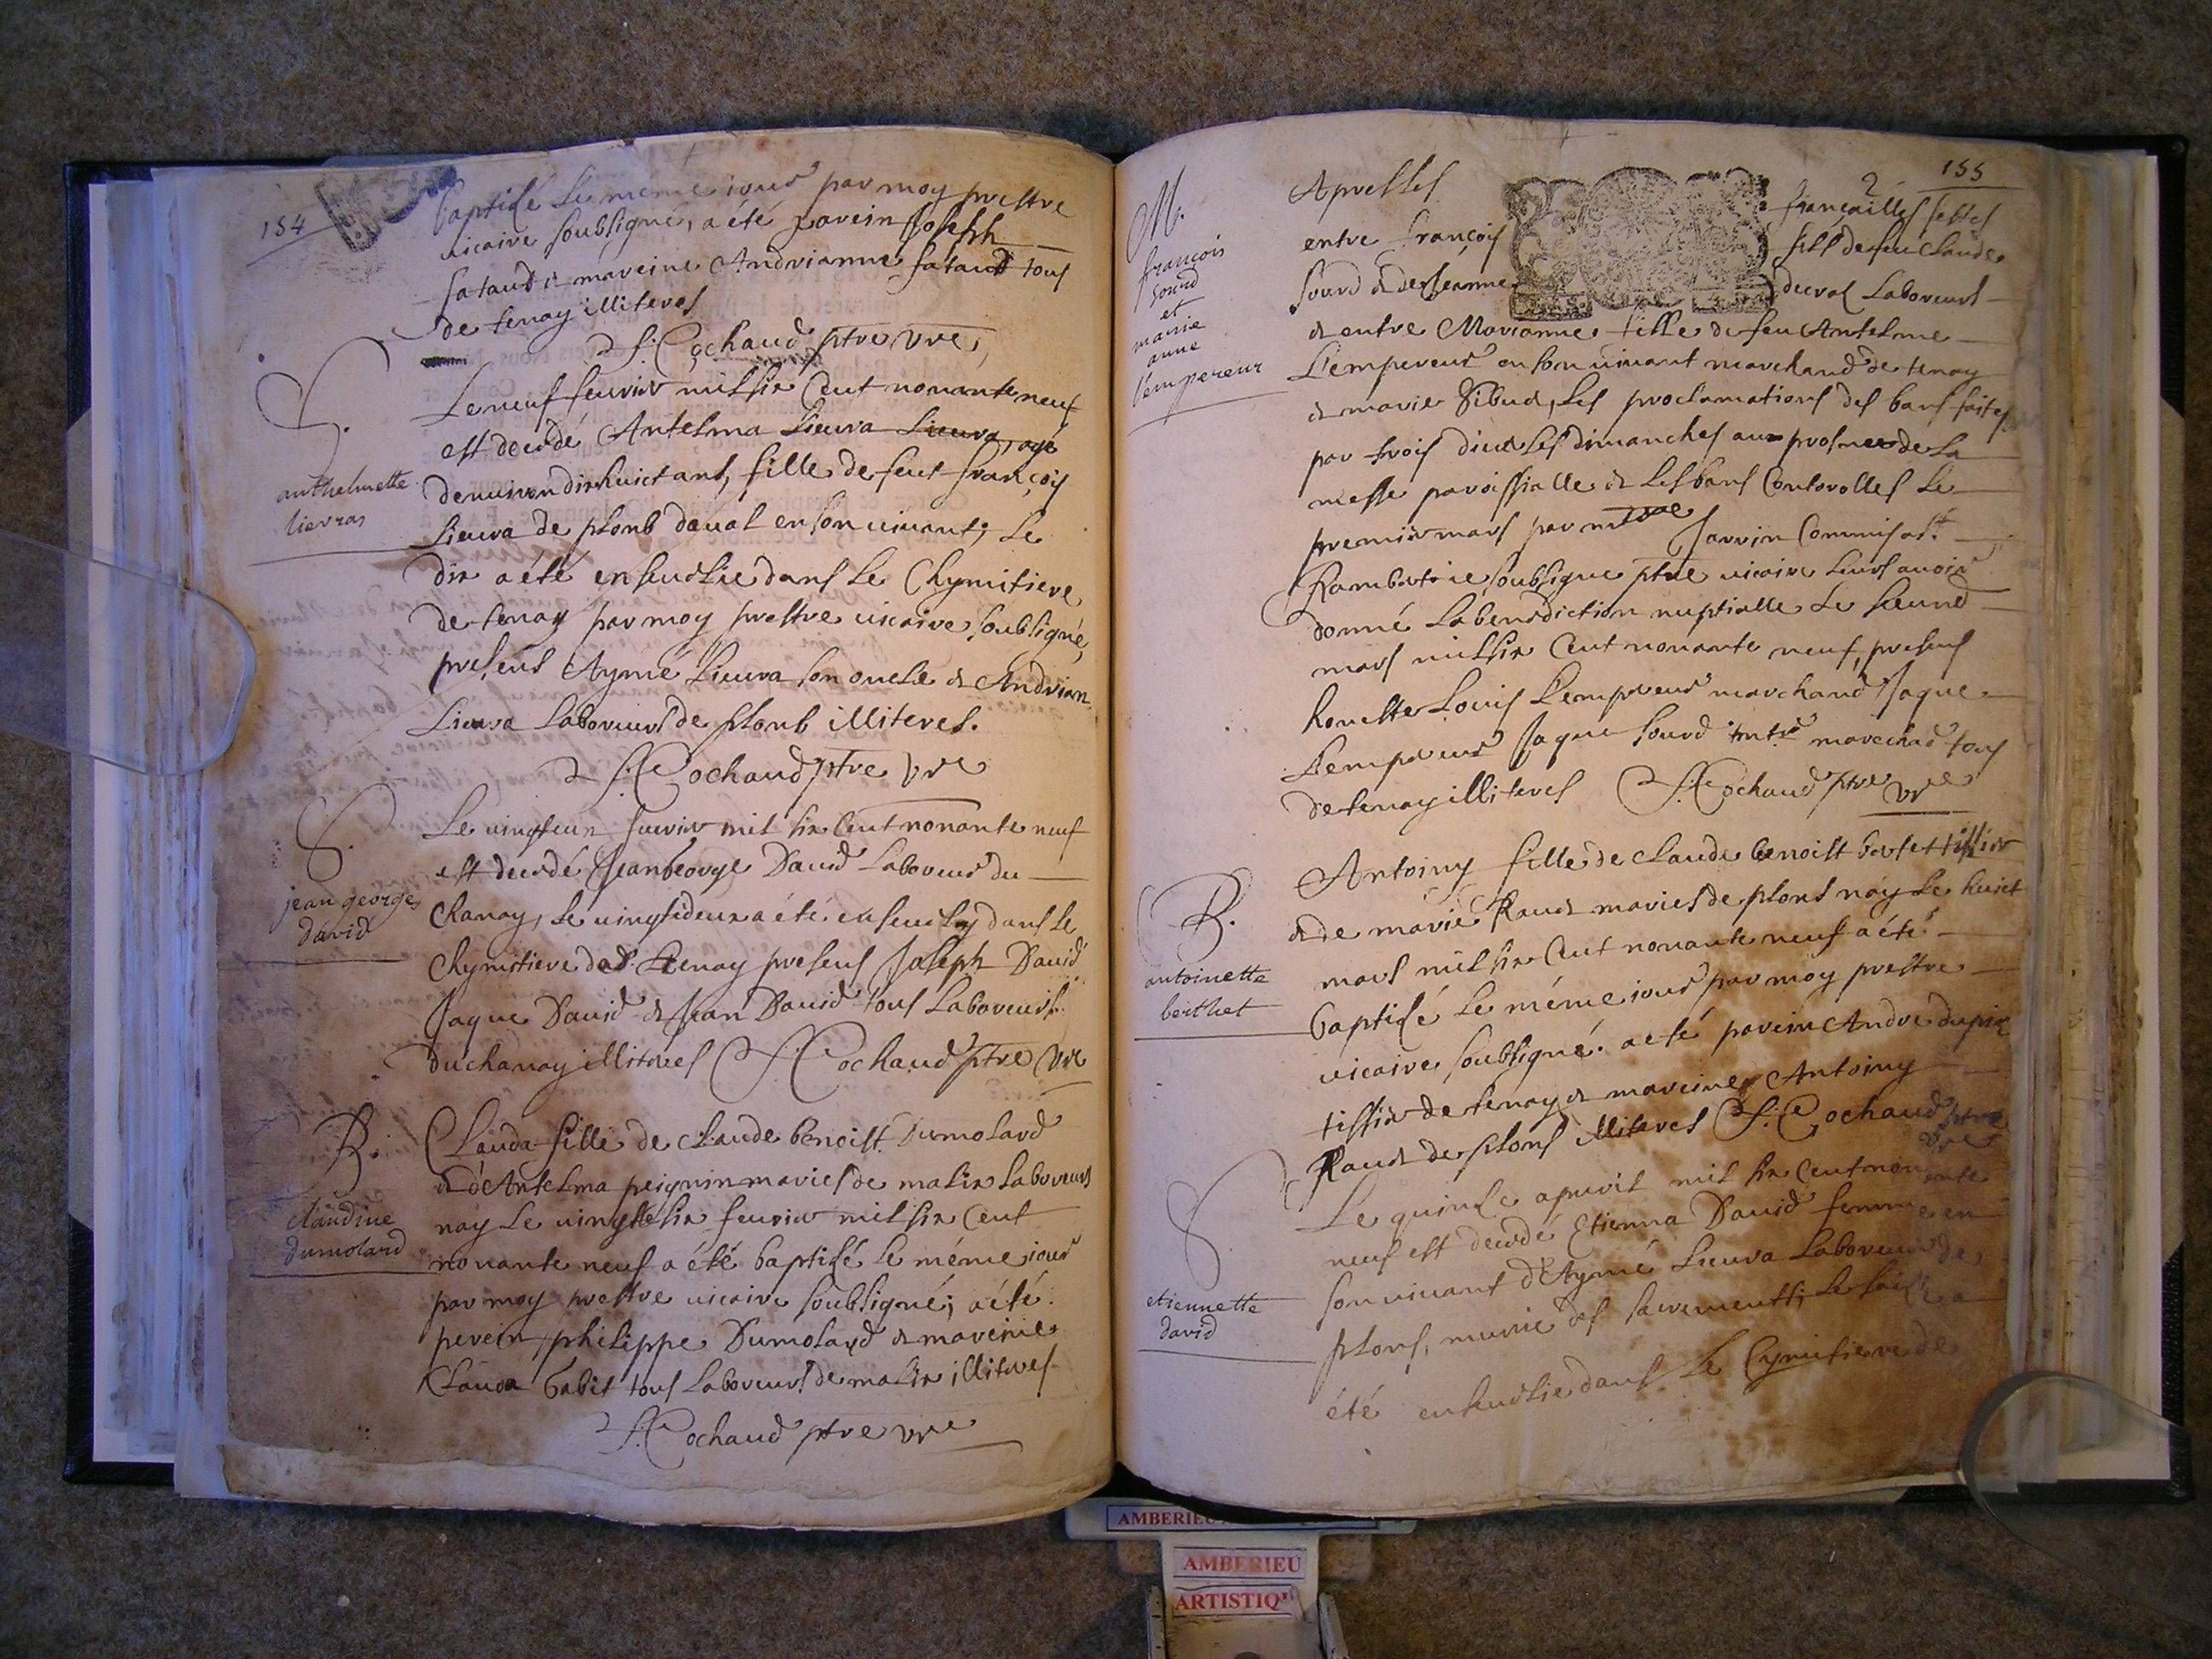 154
Baptisé le méme iour par moy prestre
vicaire soubsigné, a été parein Joseph
fataud & mareine Andrianne fataud tous
de tenay illiteres
f. Cochaud ptre vre
S.
anthelmette
lievras
Le neuf feurier mil six Cent nonante neuf
est decedé Antelma Lieura Lieura, agé
denuiron dixhuict ans, fille de feut françois
Lieura de plonb daual en son uiuant; Le
dix a été enseuelie dans le Chymitiere
de tenay par moy prestre uicaire soubsigné,
presens Aymé Lieura son oncle & Andrian
Lieura Laboreurs de plonb illiteres.
f. Cochaud ptre vre
S.
jean georges
david
Le uingteun feurier mil six Cent nonante neuf
est decedé Jean George Dauid Laboreur du
Chanay, Le uingtedeux a été enseuely dans le
Chymitiere de Tenay presens Joseph Dauid
Jaque Dauid & Jean Dauid tous Laboreurs
du chanay illiteres f. Cochaud ptre vre
B.
claudine
dumolard
Clauda fille de Claude benoist Dumolard
& d'Antelma peignin maries de malix laboreurs
nay Le uingtesix feurier mil six Cent
nonante neuf a été baptisé le méme iour
par moy prestre uicaire soubsigné; a été
perein philippe Dumolard & mareine
Clauda Babit tous Laboreurs de malix illiteres
f. Cochaud ptre vre
155
2
M.
françois
sourd
et
marie
anne
l'empereur
Apres les fiançailles festes
entre françois fils de feu Claude
sourd & de Jeanne duval Laboreurs
& entre Marianne fille de feu Antelme
L'empereur en son uiuant marchand de tenay
& marie Sibud, Les proclamations des bans faites
par trois diuerses dimanches au prosne de La
messe paroissialle & Les bans Controlles Le
premier mars par Jarrin Commis a St
Rambert ie soubsigne ptre uicaire Leurs auoir
donné La benediction nuptialle Le second
mars mil six Cent nonante neuf, presens
honeste Louis L'empereur marchand Jaque
L'empereur Jaque sourd marechad tous
de tenay illiteres f. Cochaud ptre vre
B.
antoinette
berthet
Antoiny fille de Claude benoist bertet tissier
& de marie Raud maries de plons nay Le huict
mars mil six Cent nonante neuf a été
baptisé Le méme iour par moy prestre
vicaire soubsigné. a eté parein Andre dupin
tissier de tenay & mareine Antoiny
Raud de plons illiteres f. Cochaud ptre
vre
S.
etiennette
david
Le quinse apuril mil six Cent nonante
neuf est decedé Etienna Dauid femme en
son uiuant d'Aymé Lieura Laboreur de
plons, munie des sacrements; Le saise a
été enseuelie dans Le Cymitiere de
AMBERIEU
AMBERIEU
ARTISTIQ